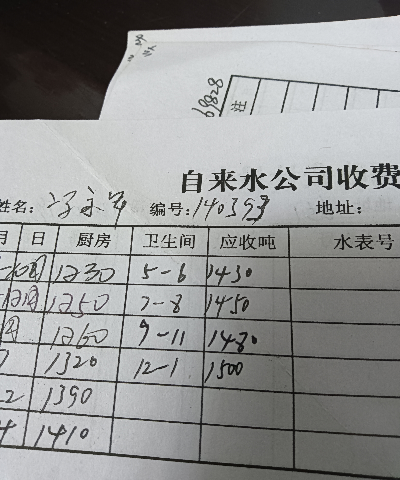 69828
注
自来水公司收费
姓名: 编号: 140393 地址:
月 日 厨房 卫生间 应收吨 水表号
1230 5-6 1430
12月 1250 7-8 1450
月 1260 9-11 1480
1320 12-1 1500
2 1390
4 1410